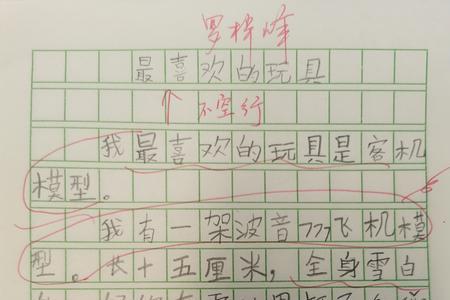 罗梓峰
最喜欢的玩具
不空行
我最喜欢的玩具是客机
模型。
我有一架波音777飞机模
型。长十五厘米,全身雪白